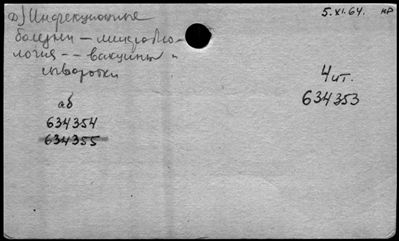 д) Инфекционные
5.XI.64. НР
болезни — микробио-
логия -- вакцины и
сыворотки
4 шт.
634353
аб
634354
634355